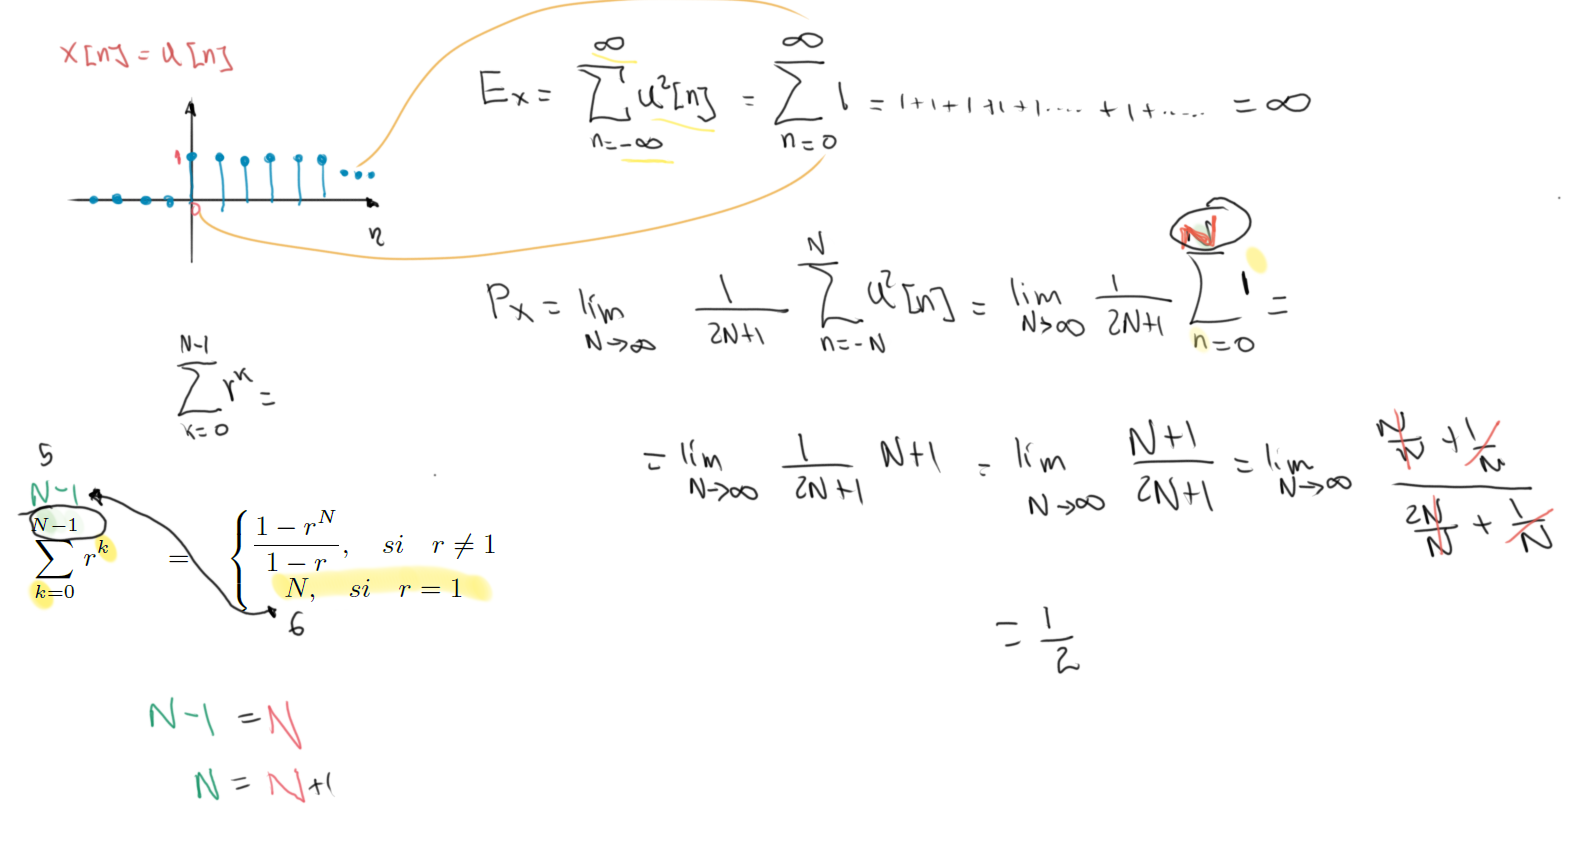 x[n] = u[n]
1
0
n
Eₓ = ∑_{n=-∞}^{∞} u²[n] = ∑_{n=0}^{∞} 1 = 1+1+1+1+1.... +1+..... = ∞
Pₓ = lim_{N→∞} 1/(2N+1) ∑_{n=-N}^{N} u²[n] = lim_{N→∞} 1/(2N+1) ∑_{n=0}^{N} 1 =
= lim_{N→∞} 1/(2N+1) N+1 = lim_{N→∞} (N+1)/(2N+1) = lim_{N→∞} (N/N + 1/N)/(2N/N + 1/N)
= 1/2
∑_{k=0}^{N-1} r^k =
5
N-1
∑_{k=0}^{N-1} r^k = { (1 - r^N)/(1 - r), si r ≠ 1
N, si r = 1
6
N-1 = N
N = N+1